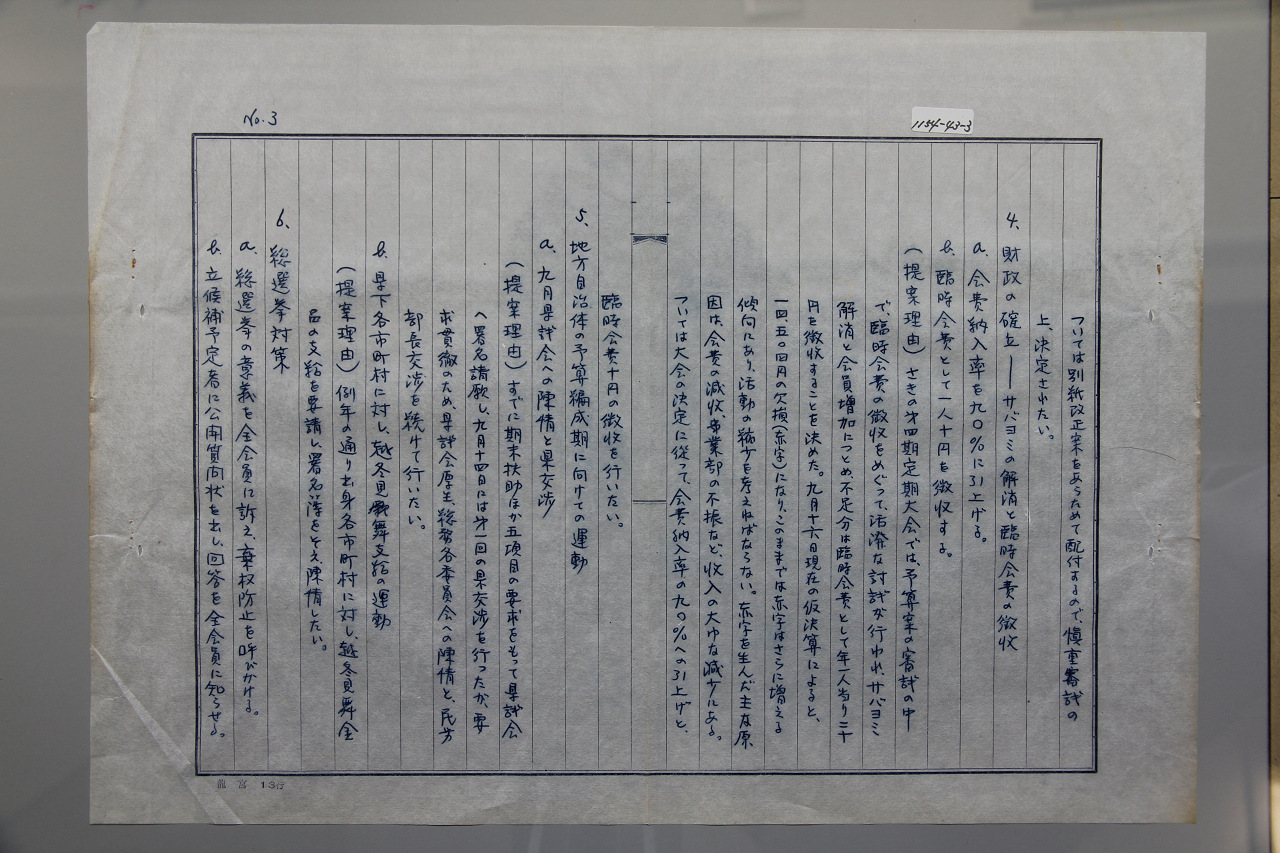 No.3
1154-43-3
ついては別紙改正案をあらためて配付するので、慎重審議の
上、決定されたい。
4、財政の確立――サバヨミの解消と臨時会費の徴収
a、会費納入率を九〇％に引上げる。
b、臨時会費として一人十円を徴収する。
（提案理由）さきの第四期定期大会では、予算案の審議の中
で、臨時会費の徴収をめぐって、活溌な討議が行われ、サバヨミ
解消と会員増加につとめ不足分は臨時会費として年一人当り二十
円を徴収することを決めた。九月十六日現在の仮決算によると、
一四、五〇四円の欠損（赤字）になり、このままでは赤字はさらに増える
傾向にあり、活動の縮少を考えねばならない。赤字を生んだ主な原
因は、会費の減収、事業部の不振など、収入の大巾な減少にある。
ついては大会の決定に従って、会費納入率の九〇％への引上げと、
臨時会費十円の徴収を行いたい。
5、地方自治体の予算編成期に向けての運動
a、九月県議会への陳情と県交渉
（提案理由）すでに期末扶助ほか五項目の要求をもって県議会
へ署名請願し、九月十四日には第一回の県交渉を行ったが、要
求貫徹のため、県議会厚生、総務各委員会への陳情と、民労
部長交渉を続けて行いたい。
b、県下各市町村に対し、越冬見舞支給の運動
（提案理由）例年の通り出身各市町村に対し、越冬見舞金
品の支給を要請し、署名簿をそえ、陳情したい。
6、総選挙対策
a、総選挙の意義を全会員に訴え、棄权防止を呼びかける。
b、立候補予定者に公開質問状を出し、回答を全会員に知らせる。
龍宮 13行